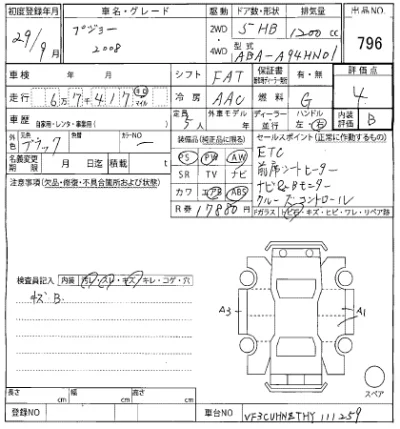 初度登録年月 車名・グレード 駆動 ドア数/形状 排気量 出品NO.
29/9月 プジョー 2008 2WD 4WD 5HB 1200cc 796
型式 ABA-A94HN01
車検 年 月 シフト FAT 保証書 有・無 評価点
走行 6万7千417 km マイル 冷房 AAC 燃料 G 4
車歴 自家用・レンタ・事業用( ) 定員 5人 外車モデル 年 ディーラー 並行 ハンドル 左・右 内装評価 B
外色 元色 ブラック 色替 カラーNO
装備品(純正品に限る) セールスポイント(正常に作動するもの)
名義変更期限 月 日迄 積載 t
PS PW AW ETC
SR TV ナビ 前席シートヒーター
注意事項(欠品・修復・不具合箇所および状態)
カワ エアB ABS ナビ&Bモニター
クルーズコントロール
R券 17880円 Fガラス トビ・キズ・ヒビ・ワレ・リペア跡
検査員記入 内装 汚レ・スレ・キズ・キレ・コゲ・穴
キズB
A3 A1
スペア
長さ cm 幅 cm 高さ cm
登録NO 車台NO VF3CUHNZTHY111259